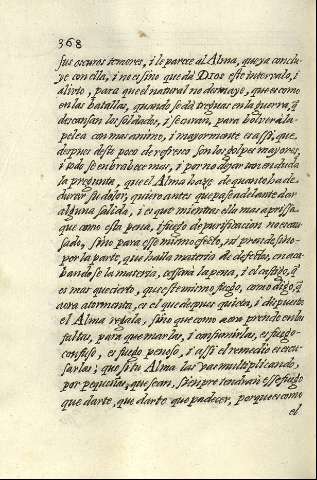 368
sus oscuros temores, i le parece al Alma, que ya conclu-
ye con ella, i no es sino que dà DIOS este intervalo, i
alivio, para que el natural no desmaye, que es como
en las batallas, quando se dà treguas en la guerra, q̃
descansan los soldados, i se curan, para bolver à la
pelea con mas animo, i mayormente es assi, que,
despues deste poco de refresco son los golpes mayores,
i todo se enbrabece mas, i por no dejar tan en duda
la pregunta, que el Alma haze de quanto ha de
durar su dolor, quiero antes que pase adelante dar
alguna salida, i es que mientras ella mas aprissa
que como esta pena, i fuego de purificacion no es cau-
sado, sino para esse mismo efecto, ni prende sino
por la parte, que halla materia de defectos, en aca-
bandose la materia, cessarà la pena, i el castigo, q̃
es mas que cierto, que este mismo fuego, como digo, q̃
aora atormenta, es el que despues quieta, i dispuesta
el Alma regala, sino que como aora prende en las
faltas, para quemarlas, i consumirlas, es fuego
confuso, es fuego penoso, i assi el remedio es escu-
sarlas; que si tu Alma las vas multiplicando,
por pequeñas, que sean, siempre tendràn esse fuego
que darte, que darte que padecer, porque es como
el